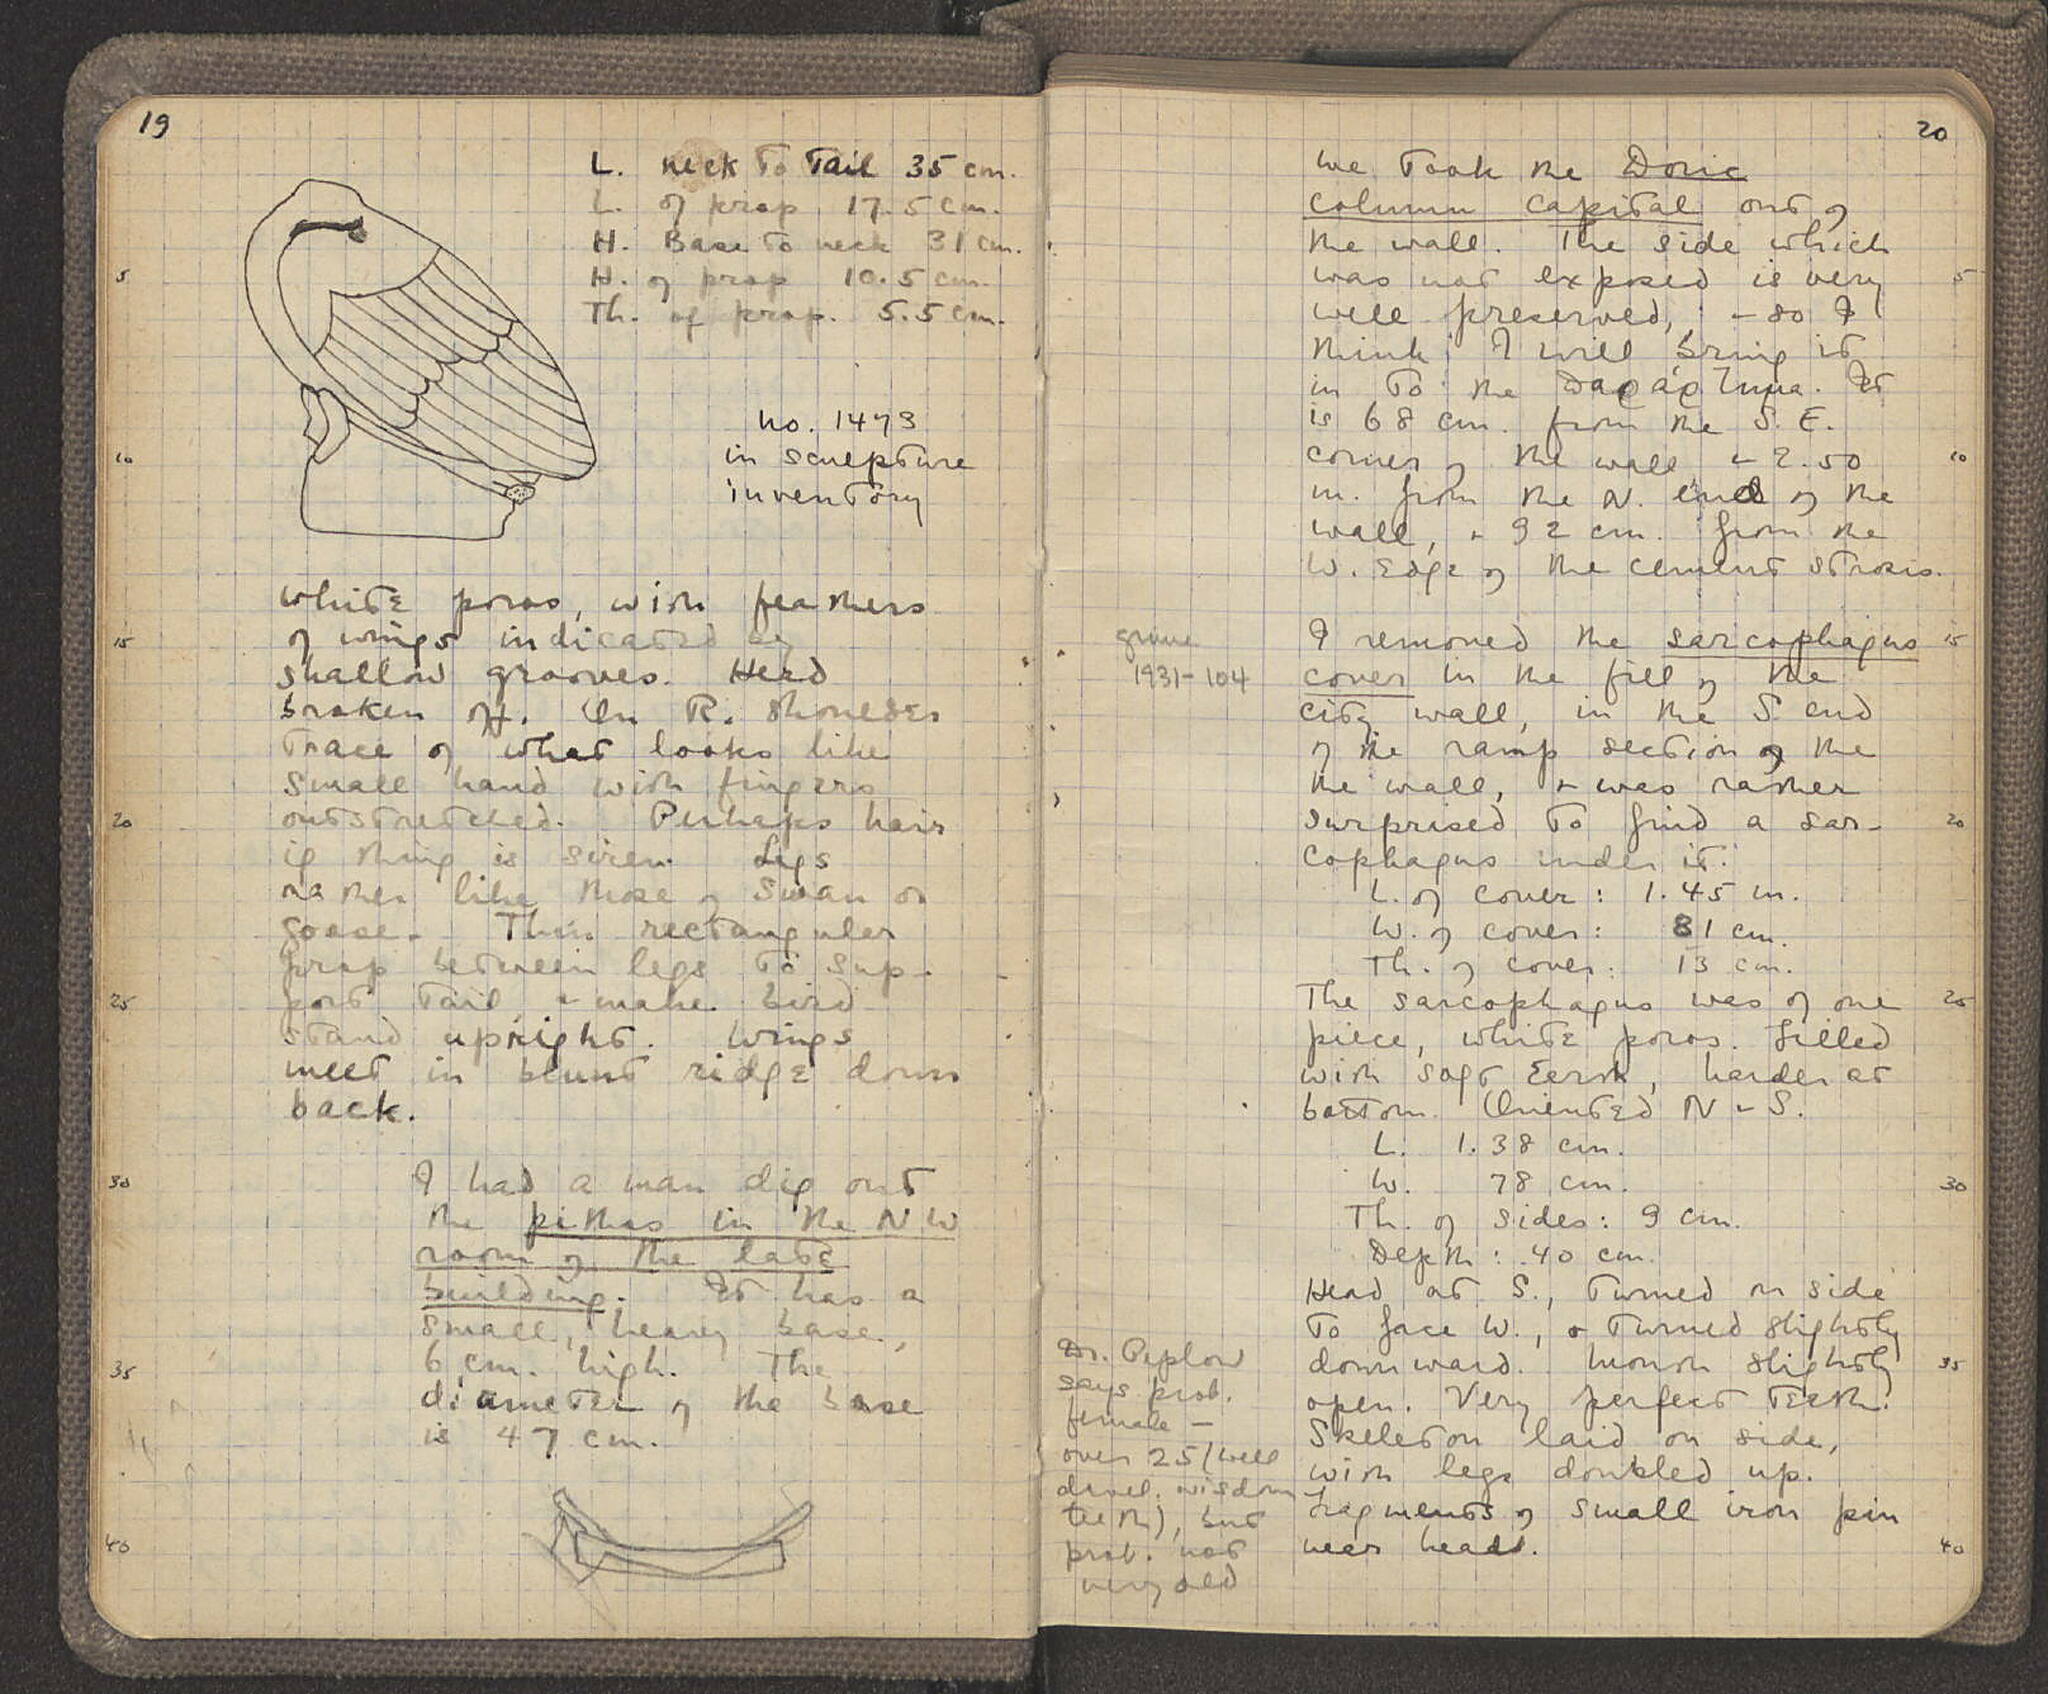 19
L. neck to tail 35 cm.
L. of prop 17.5 cm.
H. Base to neck 31 cm.
5
H. of prop 10.5 cm.
Th. of prop. 5.5 cm.
no. 1473
10
in sculpture
inventory
white poros, with feathers
15
of wings indicated by
shallow grooves. Head
broken off. On R. shoulder
trace of what looks like
small hand with fingers
20
outstretched. Perhaps hair
if thing is siren. Legs
rather like those of swan or
goose. Thin rectangular
prop between legs to sup-
25
port tail, & make bird
stand upright. Wings
meet in blunt ridge down
back.
30
I had a man dig out
the pithos in the NW
room of the late
building. It has a
small, heavy base,
35
6 cm. high. The
diameter of the base
is 47 cm.
40
20
We took the Doric
column capital out of
the wall. The side which
5
was not exposed is very
well preserved, - so I
think I will bring it
in to the
It
is 68 cm. from the S.E.
10
corner of the wall, & 2.50
m. from the N. end of the
wall, & 92 cm. from the
W. Edge of the cement strosis.
grave
1931-104
15
I removed the sarcophagus
cover in the fill of the
city wall, in the S. end
of the ramp section of the
the wall, & was rather
20
surprised to find a sar-
cophagus under it.
L. of cover: 1.45 m.
W. of cover: 81 cm.
Th. of cover: 13 cm.
25
The sarcophagus was of one
piece, white poros. Filled
with soft Earth, harder at
bottom. Oriented N - S.
L. 1.38 cm.
30
W. 78 cm.
Th. of sides: 9 cm.
Depth: .40 cm.
Head at S., turned on side
to face W., & turned slightly
35
downward. Mouth slightly
open. Very perfect teeth.
Skeleton laid on side,
with legs doubled up.
Fragments of small iron pin
40
near head.
Dr. Peplow
says prob.
female -
over 25 (well
devel. wisdom
teeth), but
prob. not
very old